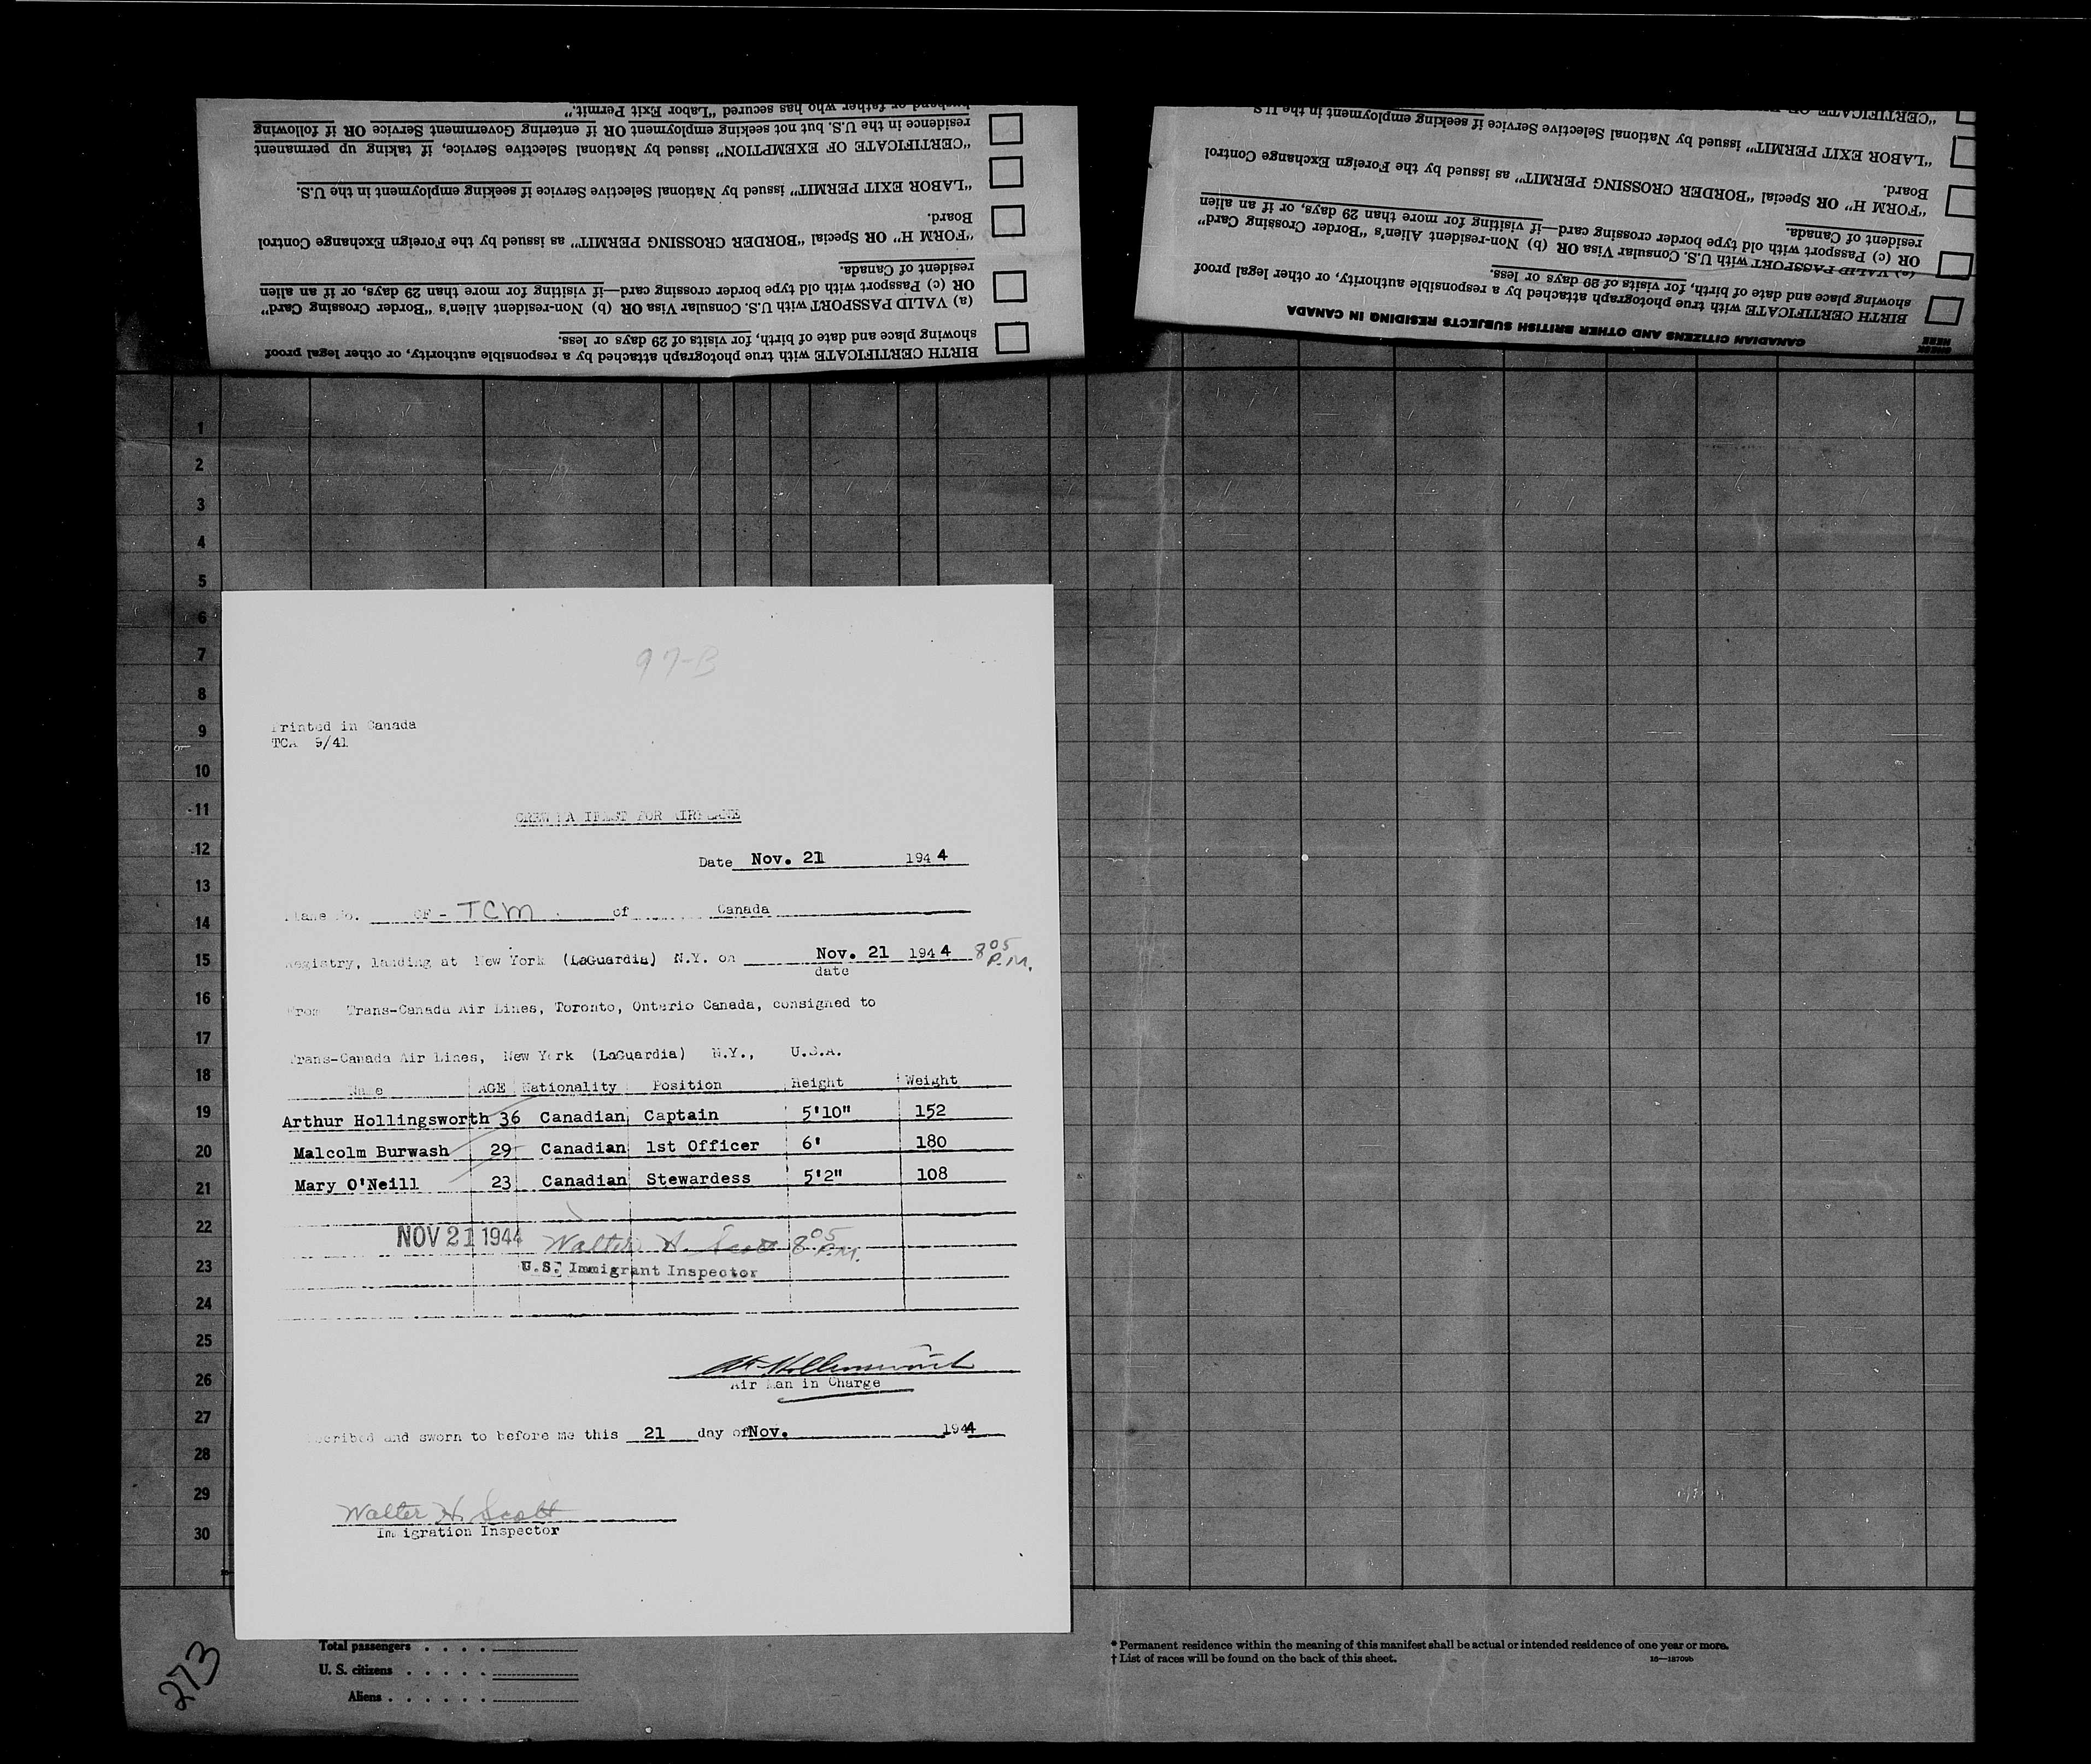 husband or father who has secured "Labor Exit Permit."
residence in the U.S. but not seeking employment OR if entering Government Service OR if following
"CERTIFICATE OF EXEMPTION" issued by National Selective Service, if taking up permanent
"LABOR EXIT PERMIT" issued by National Selective Service if seeking employment in the U.S.
Board.
"FORM H" OR Special "BORDER CROSSING PERMIT" as issued by the Foreign Exchange Control
resident of Canada.
OR (c) Passport with old type border crossing card—if visiting for more than 29 days, or if an alien
(a) VALID PASSPORT with U.S. Consular Visa OR (b) Non-resident Alien's "Border Crossing Card"
showing place and date of birth, for visits of 29 days or less.
BIRTH CERTIFICATE with true photograph attached by a responsible authority, or other legal proof
"CERTIFICATE OF
"LABOR EXIT PERMIT" issued by National Selective Service if seeking employment in the U.S.
Board.
"FORM H" OR Special "BORDER CROSSING PERMIT" as issued by the Foreign Exchange Control
resident of Canada.
OR (c) Passport with old type border crossing card—if visiting for more than 29 days, or if an alien
(a) VALID PASSPORT with U.S. Consular Visa OR (b) Non-resident Alien's "Border Crossing Card"
showing place and date of birth, for visits of 29 days or less.
BIRTH CERTIFICATE with true photograph attached by a responsible authority, or other legal proof
CANADIAN CITIZENS AND OTHER BRITISH SUBJECTS RESIDING IN CANADA
CHECK HERE
1
2
3
4
5
6
7
8
9
10
11
12
13
14
15
16
17
18
19
20
21
22
23
24
25
26
27
28
29
30
97-B
Printed in Canada
TCA 9/41
CREW MANIFEST FOR AIRPLANE
Date Nov. 21 1944
Plane No. CF - TCM of Canada
Registry, landing at New York (LaGuardia) N.Y. on Nov. 21 1944 8 05 P.M.
date
From Trans-Canada Air Lines, Toronto, Ontario Canada, consigned to
Trans-Canada Air Lines, New York (LaGuardia) N.Y., U.S.A.
Name AGE Nationality Position Height Weight
Arthur Hollingsworth 36 Canadian Captain 5'10" 152
Malcolm Burwash 29 Canadian 1st Officer 6' 180
Mary O'Neill 23 Canadian Stewardess 5'2" 108
NOV 21 1944 Walter H. Scott 8 05 P.M.
U.S. Immigrant Inspector
Air Man in Charge
scribed and sworn to before me this 21 day of Nov. 1944
Walter H. Scott
Immigration Inspector
Total passengers . . . .
U. S. citizens . . . . .
Aliens . . . . . .
* Permanent residence within the meaning of this manifest shall be actual or intended residence of one year or more.
† List of races will be found on the back of this sheet.
273